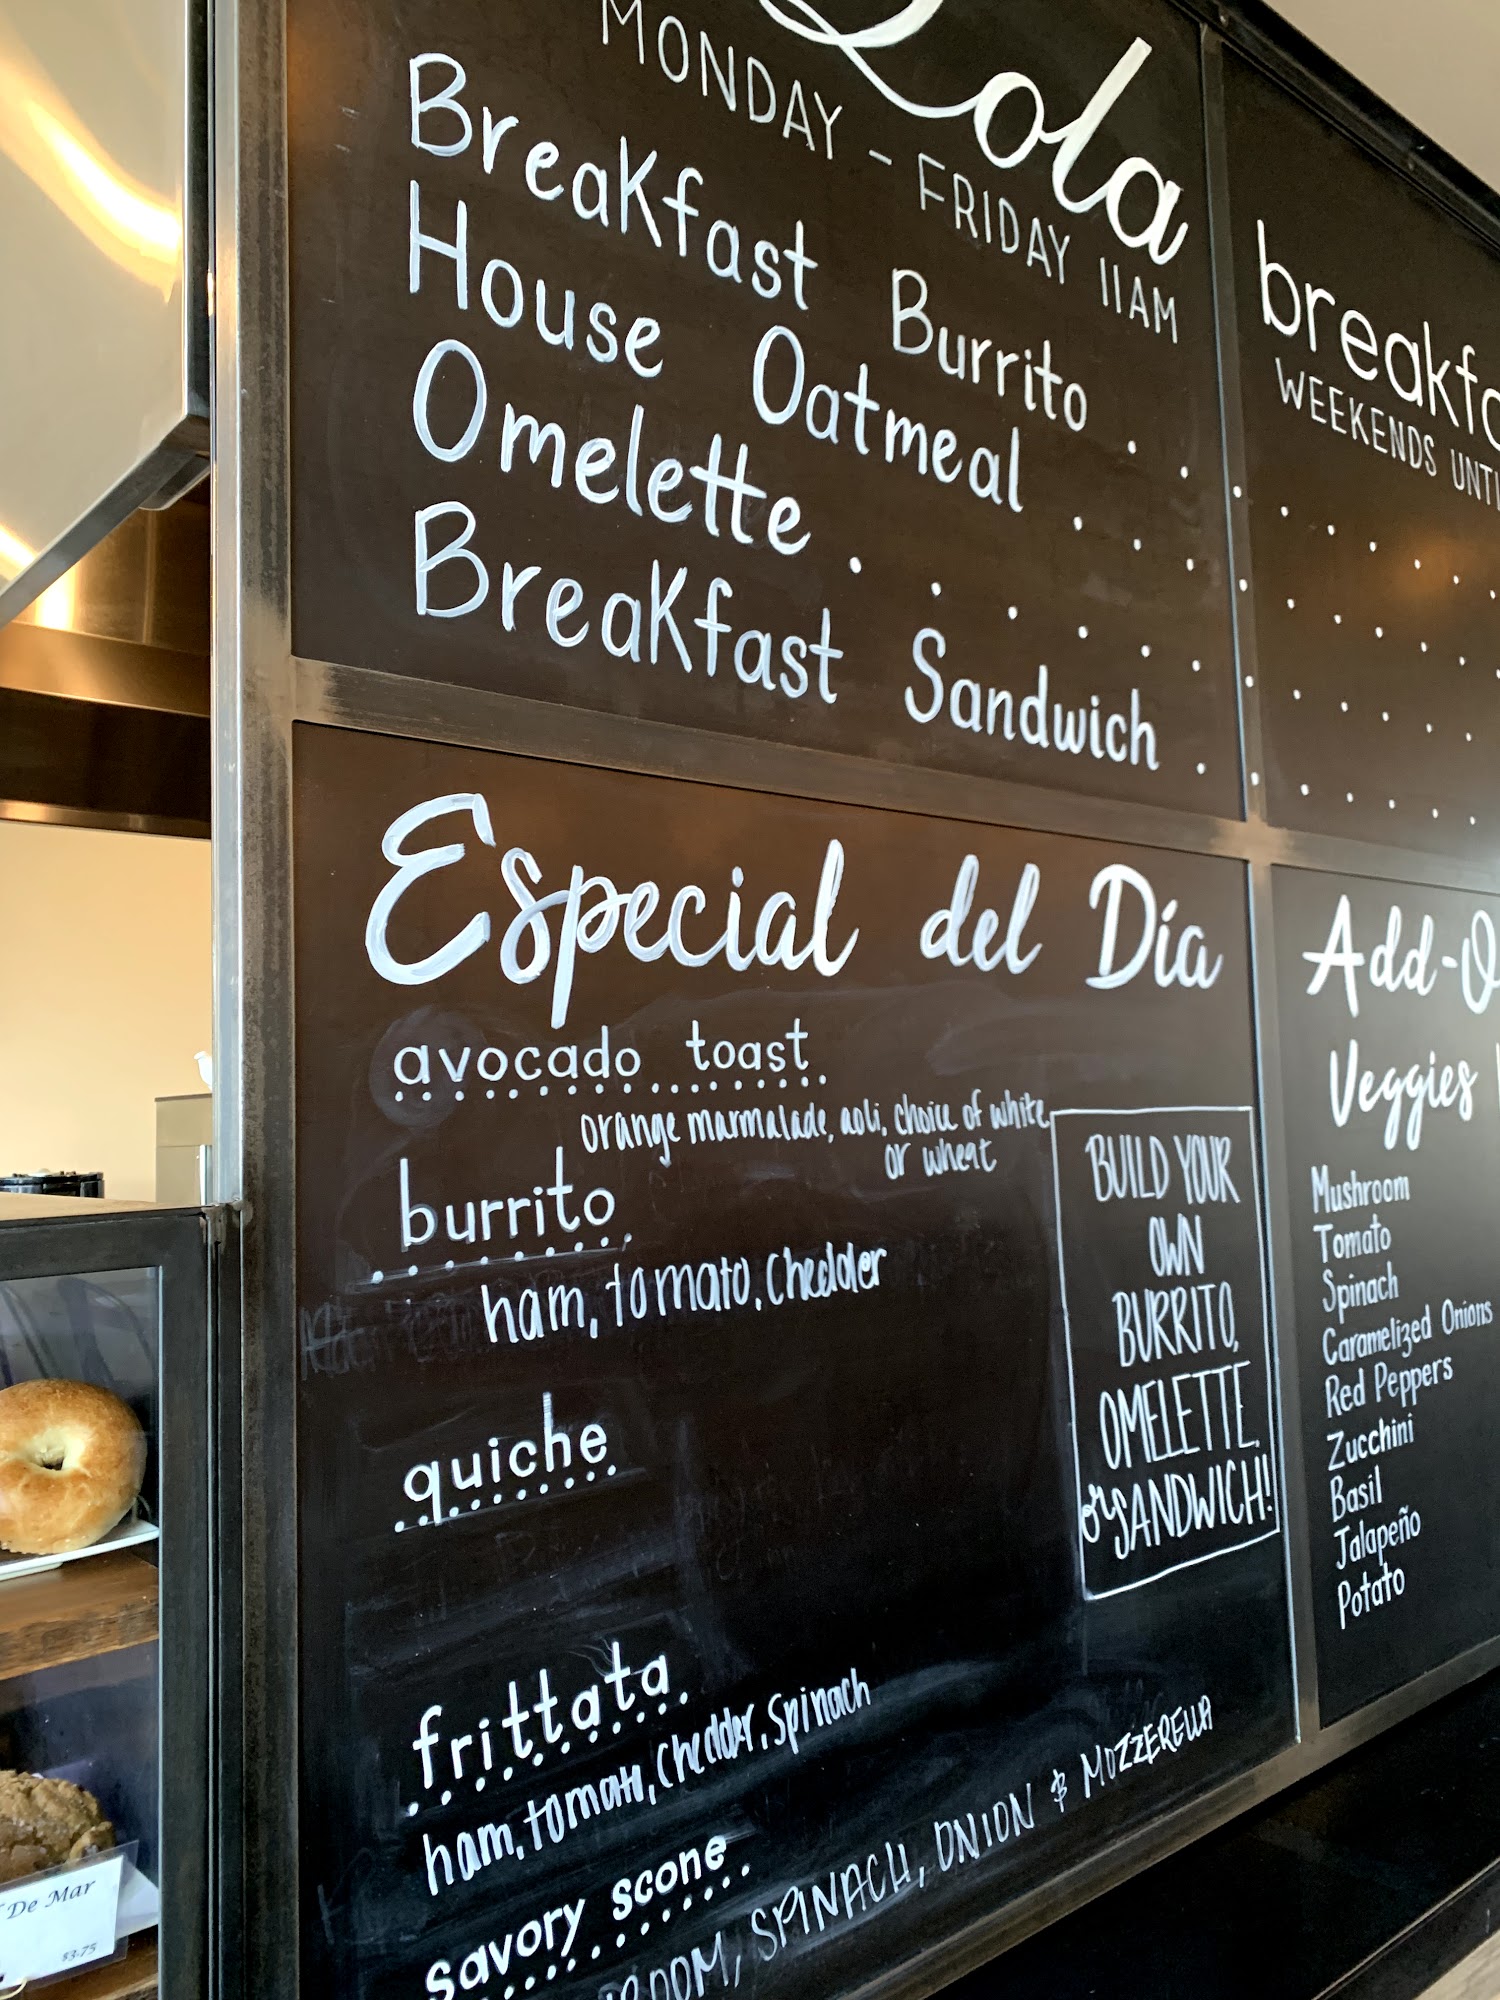 Lola
MONDAY - FRIDAY 11AM
Breakfast Burrito . . . . . . . .
House Oatmeal . . . . . . . . .
Omelette . . . . . . . . . . . .
Breakfast Sandwich . . . . . . .
WEEKENDS
Especial del Día
avocado toast
orange marmalade, aoli, choice of white
or wheat
burrito
ham, tomato, Cheddder
quiche
frittata
ham, tomato, Cheddar, Spinach
savory scone
SPINACH, ONION & MOZZERELLA
BUILD YOUR
OWN
BURRITO,
OMELETTE,
or SANDWICH!
Veggies
Mushroom
Tomato
Spinach
Caramelized Onions
Red Peppers
Zucchini
Basil
Jalapeño
Potato
De Mar
$3.75